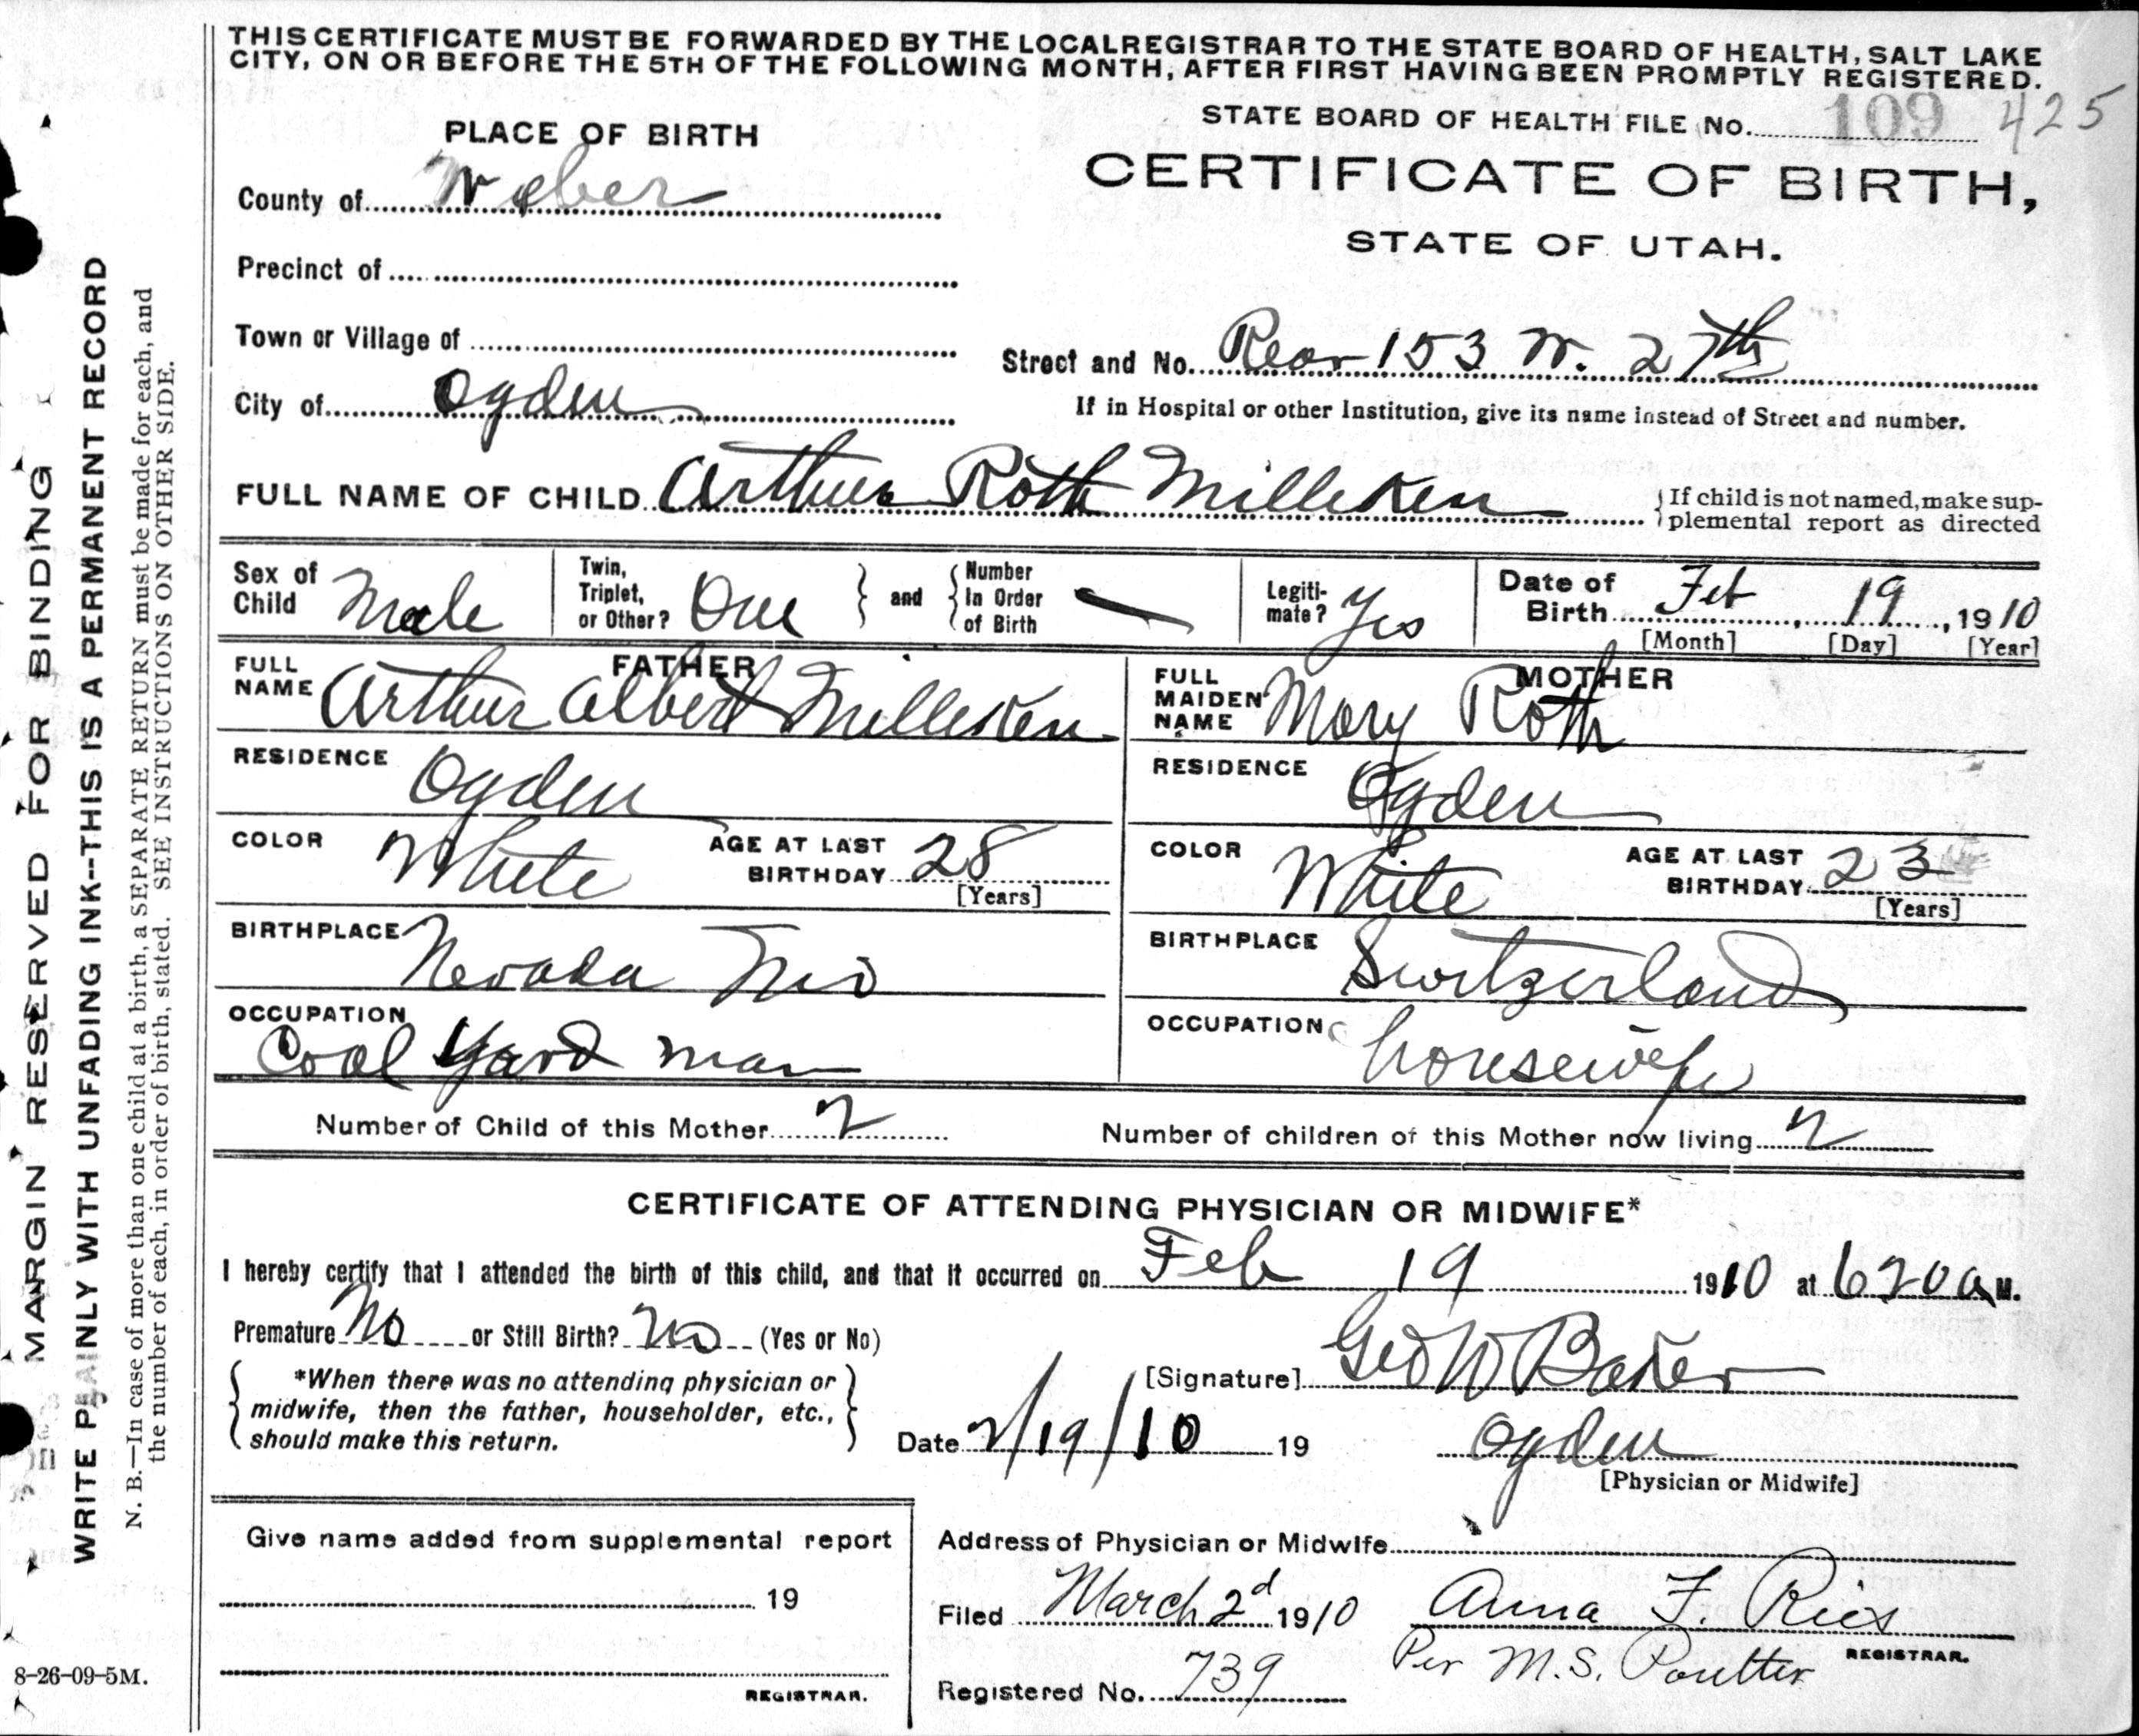 THIS CERTIFICATE MUST BE FORWARDED BY THE LOCAL REGISTRAR TO THE STATE BOARD OF HEALTH, SALT LAKE
CITY, ON OR BEFORE THE 5TH OF THE FOLLOWING MONTH, AFTER FIRST HAVING BEEN PROMPTLY REGISTERED.
STATE BOARD OF HEALTH FILE No. 109 425
PLACE OF BIRTH
CERTIFICATE OF BIRTH,
STATE OF UTAH.
County of Weber
Precinct of
Town or Village of
Street and No. Rear 153 W. 27th
City of Ogden
If in Hospital or other Institution, give its name instead of Street and number.
FULL NAME OF CHILD Arthur Roth Milliken
If child is not named, make sup-
plemental report as directed
Sex of Child Male
Twin, Triplet, or Other? One
and
Number In Order of Birth —
Legiti-mate? Yes
Date of Birth Feb 19, 1910
[Month] [Day] [Year]
FATHER
FULL NAME Arthur Albert Milliken
RESIDENCE Ogden
COLOR White
AGE AT LAST BIRTHDAY 28
[Years]
BIRTHPLACE Nevada Mo
OCCUPATION
Coal Yard man
MOTHER
FULL MAIDEN NAME Mary Roth
RESIDENCE Ogden
COLOR White
AGE AT LAST BIRTHDAY 23
[Years]
BIRTHPLACE Switzerland
OCCUPATION housewife
Number of Child of this Mother 2
Number of children of this Mother now living 2
CERTIFICATE OF ATTENDING PHYSICIAN OR MIDWIFE*
I hereby certify that I attended the birth of this child, and that it occurred on Feb 19 1910 at 6 20 a M.
Premature No or Still Birth? No (Yes or No)
*When there was no attending physician or
midwife, then the father, householder, etc.,
should make this return.
[Signature] Geo W Baker
Date 2/19/10 19
Ogden
[Physician or Midwife]
Give name added from supplemental report
19
REGISTRAR.
Address of Physician or Midwife
Filed March 2d 1910
Anna F. Ries
REGISTRAR.
Per M.S. Poulter
Registered No. 739
8-26-09-5M.
MARGIN RESERVED FOR BINDING
WRITE PLAINLY WITH UNFADING INK--THIS IS A PERMANENT RECORD
N. B.—In case of more than one child at a birth, a SEPARATE RETURN must be made for each, and
the number of each, in order of birth, stated. SEE INSTRUCTIONS ON OTHER SIDE.